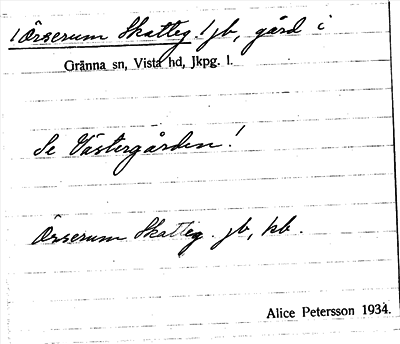 /Örserum Skatteg./ jb, gård i
Gränna sn, Vista hd, Jkpg. l.
Se Västergården!
Örserum Skatteg. jb, kb.
Alice Petersson 1934.